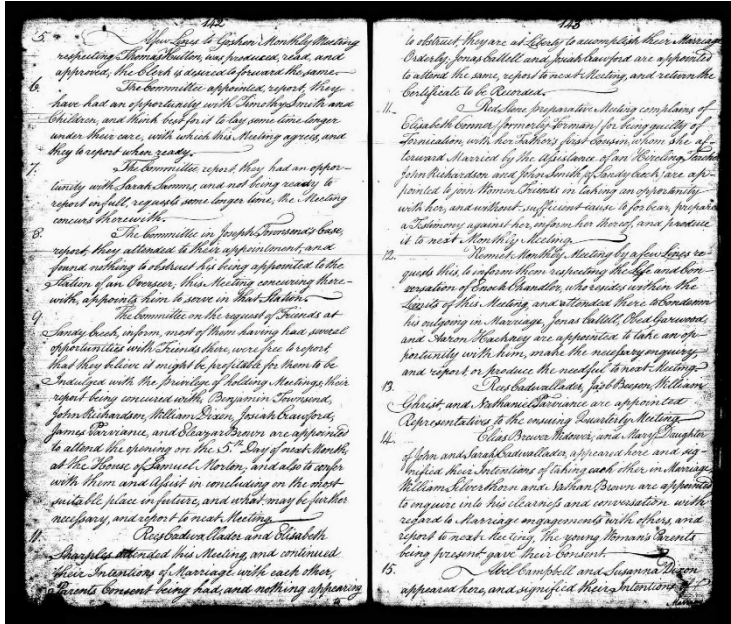 142
5. A few Lines to Goshen Monthly Meeting
respecting Thomas Hutton, was produced, read, and
approved, the Clerk is desired to forward the same.
6. The Committee appointed, report, they
have had an opportunity with Timothy Smith and
Children, and think best for it to lay some time longer
under their care, with which this Meeting agrees, and
they to report when ready.
7. The Committee, report, they had an oppor-
tunity with Sarah Samms, and not being ready to
report in full, requests some longer time, the Meeting
concurs therewith.
8. The Committee in Joseph Townsend's Case,
report, they attended to their appointment, and
found nothing to obstruct his being appointed to the
Station of an Overseer, this Meeting concuring there-
with, appoints them to serve in that Station.
9. The Committee on the request of Friends at
Sandy Creek, inform, most of them having had several
opportunities with Friends there, were free to report,
that they believe it might be profitable for them to be
Indulged with the privilege of holding Meetings, their
report being concured with, Benjamin Townsend,
John Richardson, William Dixon, Josiah Crawford,
James Parviance, and Eleazar Brown are appointed
to attend the opening on the 5th Day of next Month,
at the House of Samuel Morton, and also to confer
with them and Assist in concluding on the most
suitable place in future, and what may be further
necessary, and report to next Meeting.
10. Rees Cadwallader and Elisabeth
Sharples attended this Meeting, and continued
their Intentions of Marriage with each other,
a Parents Consent being had, and nothing appearing
143
to obstruct, they are at Liberty to accomplish their Marriage
Orderly, Jonas Cattell and Josiah Crawford are appointed
to attend the same, report to next Meeting, and return the
Certificate to be Recorded.
11. Red Stone preparative Meeting complains of
Elisabeth Conner (formerly Forman) for being guilty of
Fornication, with her Father's first Cousin, whom she af-
terward Married by the Assistance of an Hireling Teacher
John Richardson and John Smith (of Sandy Creek) are ap-
pointed to join Women Friends in taking an opportunity
with her, and without sufficient cause to forbear, prepare
a Testimony against her, inform her thereof, and produce
it to next Monthly Meeting.
12. Kennet Monthly Meeting by a few Lines re-
quests this, to inform them respecting the Life and Con-
versation of Enoch Chandler, who resides within the
Limits of this Meeting, and attended there to Condemn
his outgoing in Marriage, Jonas Cattell, Obed Garwood,
and Aaron Hackney are appointed to take an op-
portunity with him, make the necessary enquiry,
and report or produce the needful to next Meeting.
13. Rees Cadwallader, Jacob Beeson, William
Ghrist, and Nathaniel Parviance are appointed
Representatives to the ensuing Quarterly Meeting.
14. Elias Brewer Widower, and Mary Daughter
of John and Sarah Cadwallader, appeared here and sig-
nified their Intentions of taking each other in Marriage,
William Silverthorn and Nathan Brown are appointed
to enquire into his clearness and conversation with
regard to Marriage engagements with others, and
report to next Meeting, the young Womans Parents
being present gave their Consent.
15. Abel Campbell and Susanna Dixon
appeared here, and signified their Intentions of
Marriage